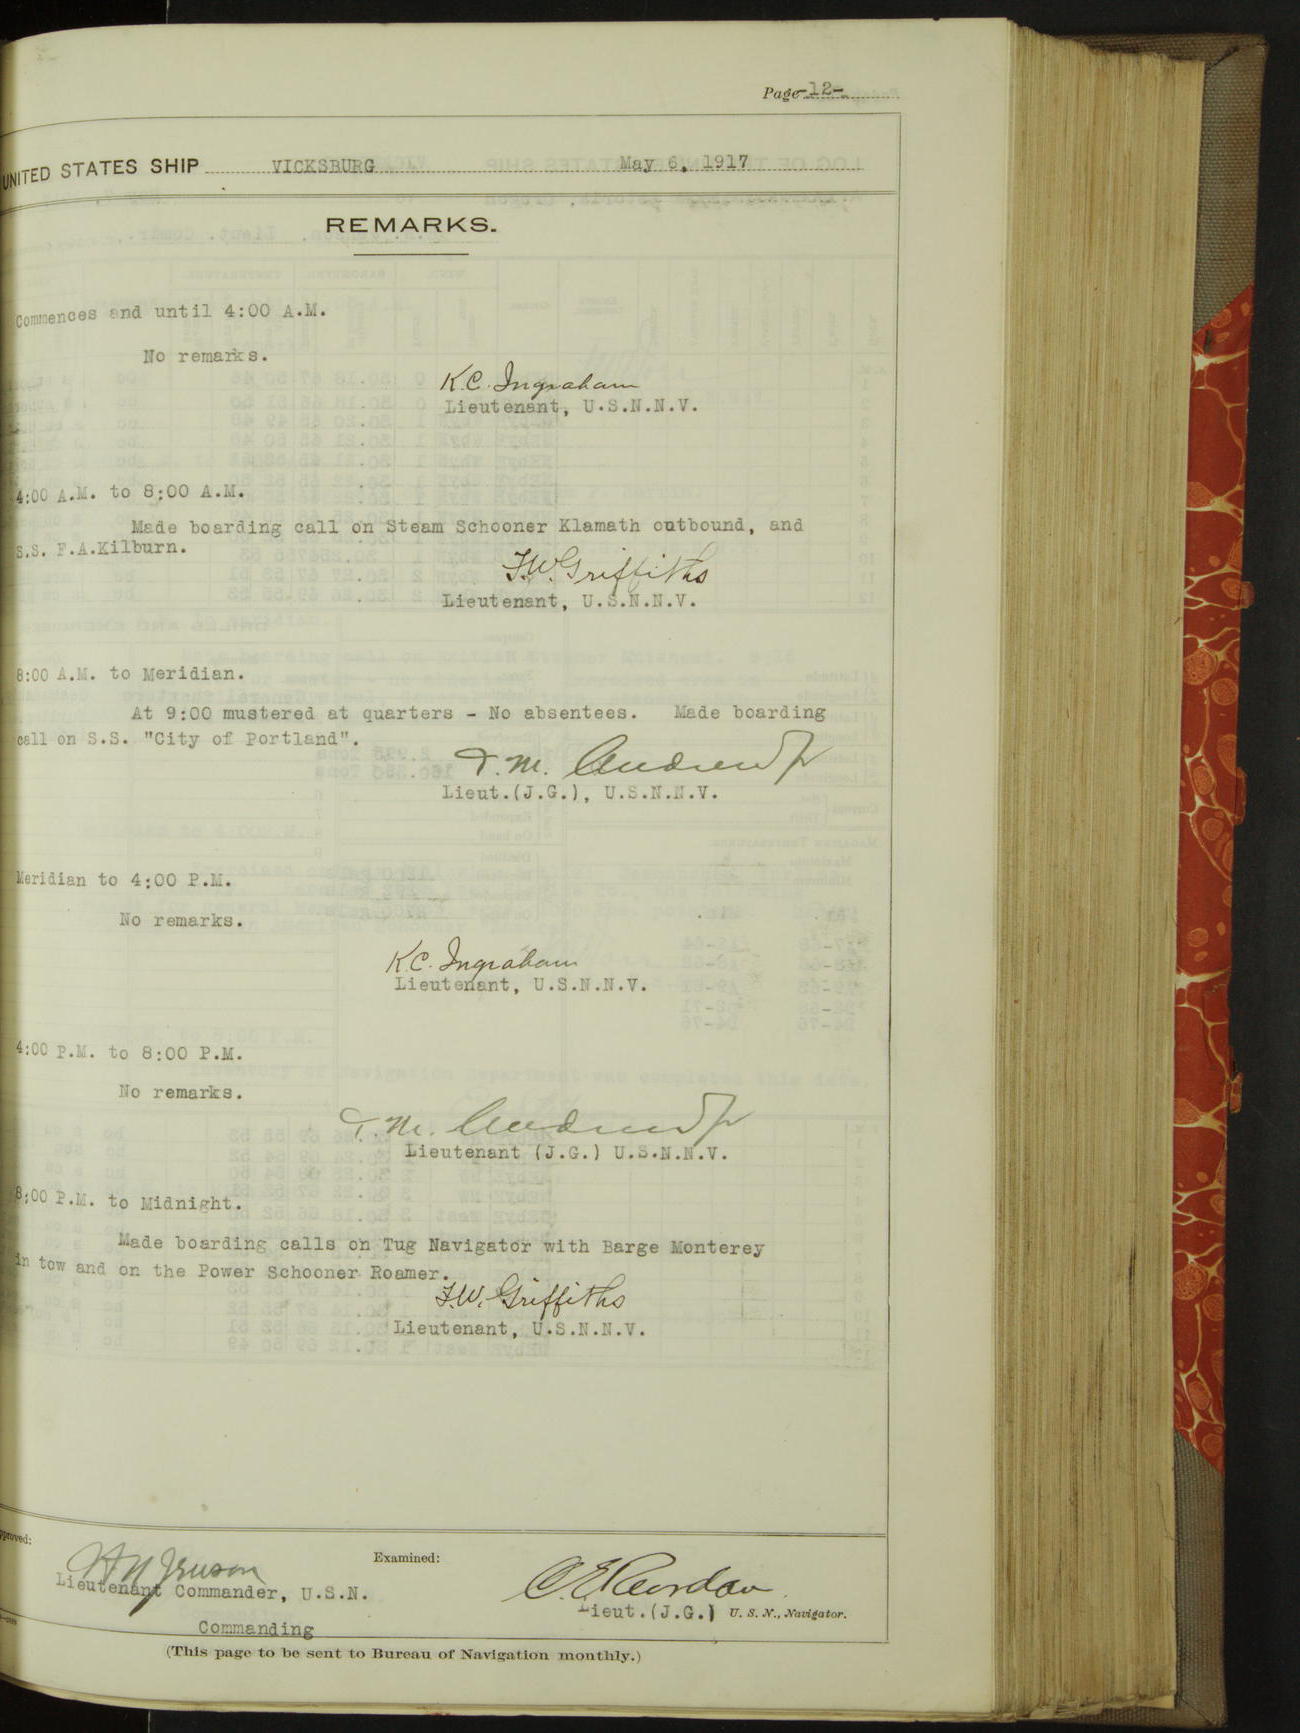 Page -12-
UNITED STATES SHIP VICKSBURG May 6, 1917
REMARKS.
Commences and until 4:00 A.M.
No remarks.
K.C. Ingraham
Lieutenant, U.S.N.N.V.
4:00 A.M. to 8:00 A.M.
Made boarding call on Steam Schooner Klamath outbound, and
S.S. F.A.Kilburn.
F.W. Griffiths
Lieutenant, U.S.N.N.V.
8:00 A.M. to Meridian.
At 9:00 mustered at quarters - No absentees. Made boarding
call on S.S. "City of Portland".
Lieut.(J.G.), U.S.N.N.V.
Meridian to 4:00 P.M.
No remarks.
K.C. Ingraham
Lieutenant, U.S.N.N.V.
4:00 P.M. to 8:00 P.M.
No remarks.
Lieutenant (J.G.) U.S.N.N.V.
8:00 P.M. to Midnight.
Made boarding calls on Tug Navigator with Barge Monterey
in tow and on the Power Schooner Roamer.
F.W. Griffiths
Lieutenant, U.S.N.N.V.
Examined:
Lieutenant Commander, U.S.N.
Lieut.(J.G.) U. S. N., Navigator.
Commanding
(This page to be sent to Bureau of Navigation monthly.)